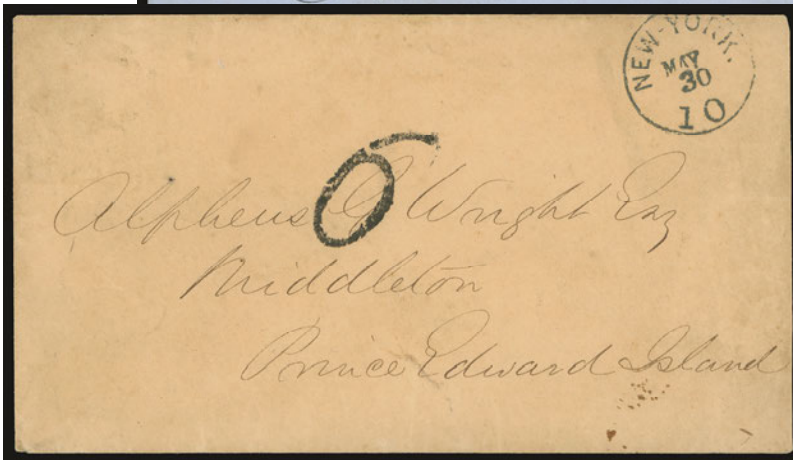 NEW-YORK.
MAY
30
10
6
Alpheus G Wright Esq
Middleton
Prince Edward Island